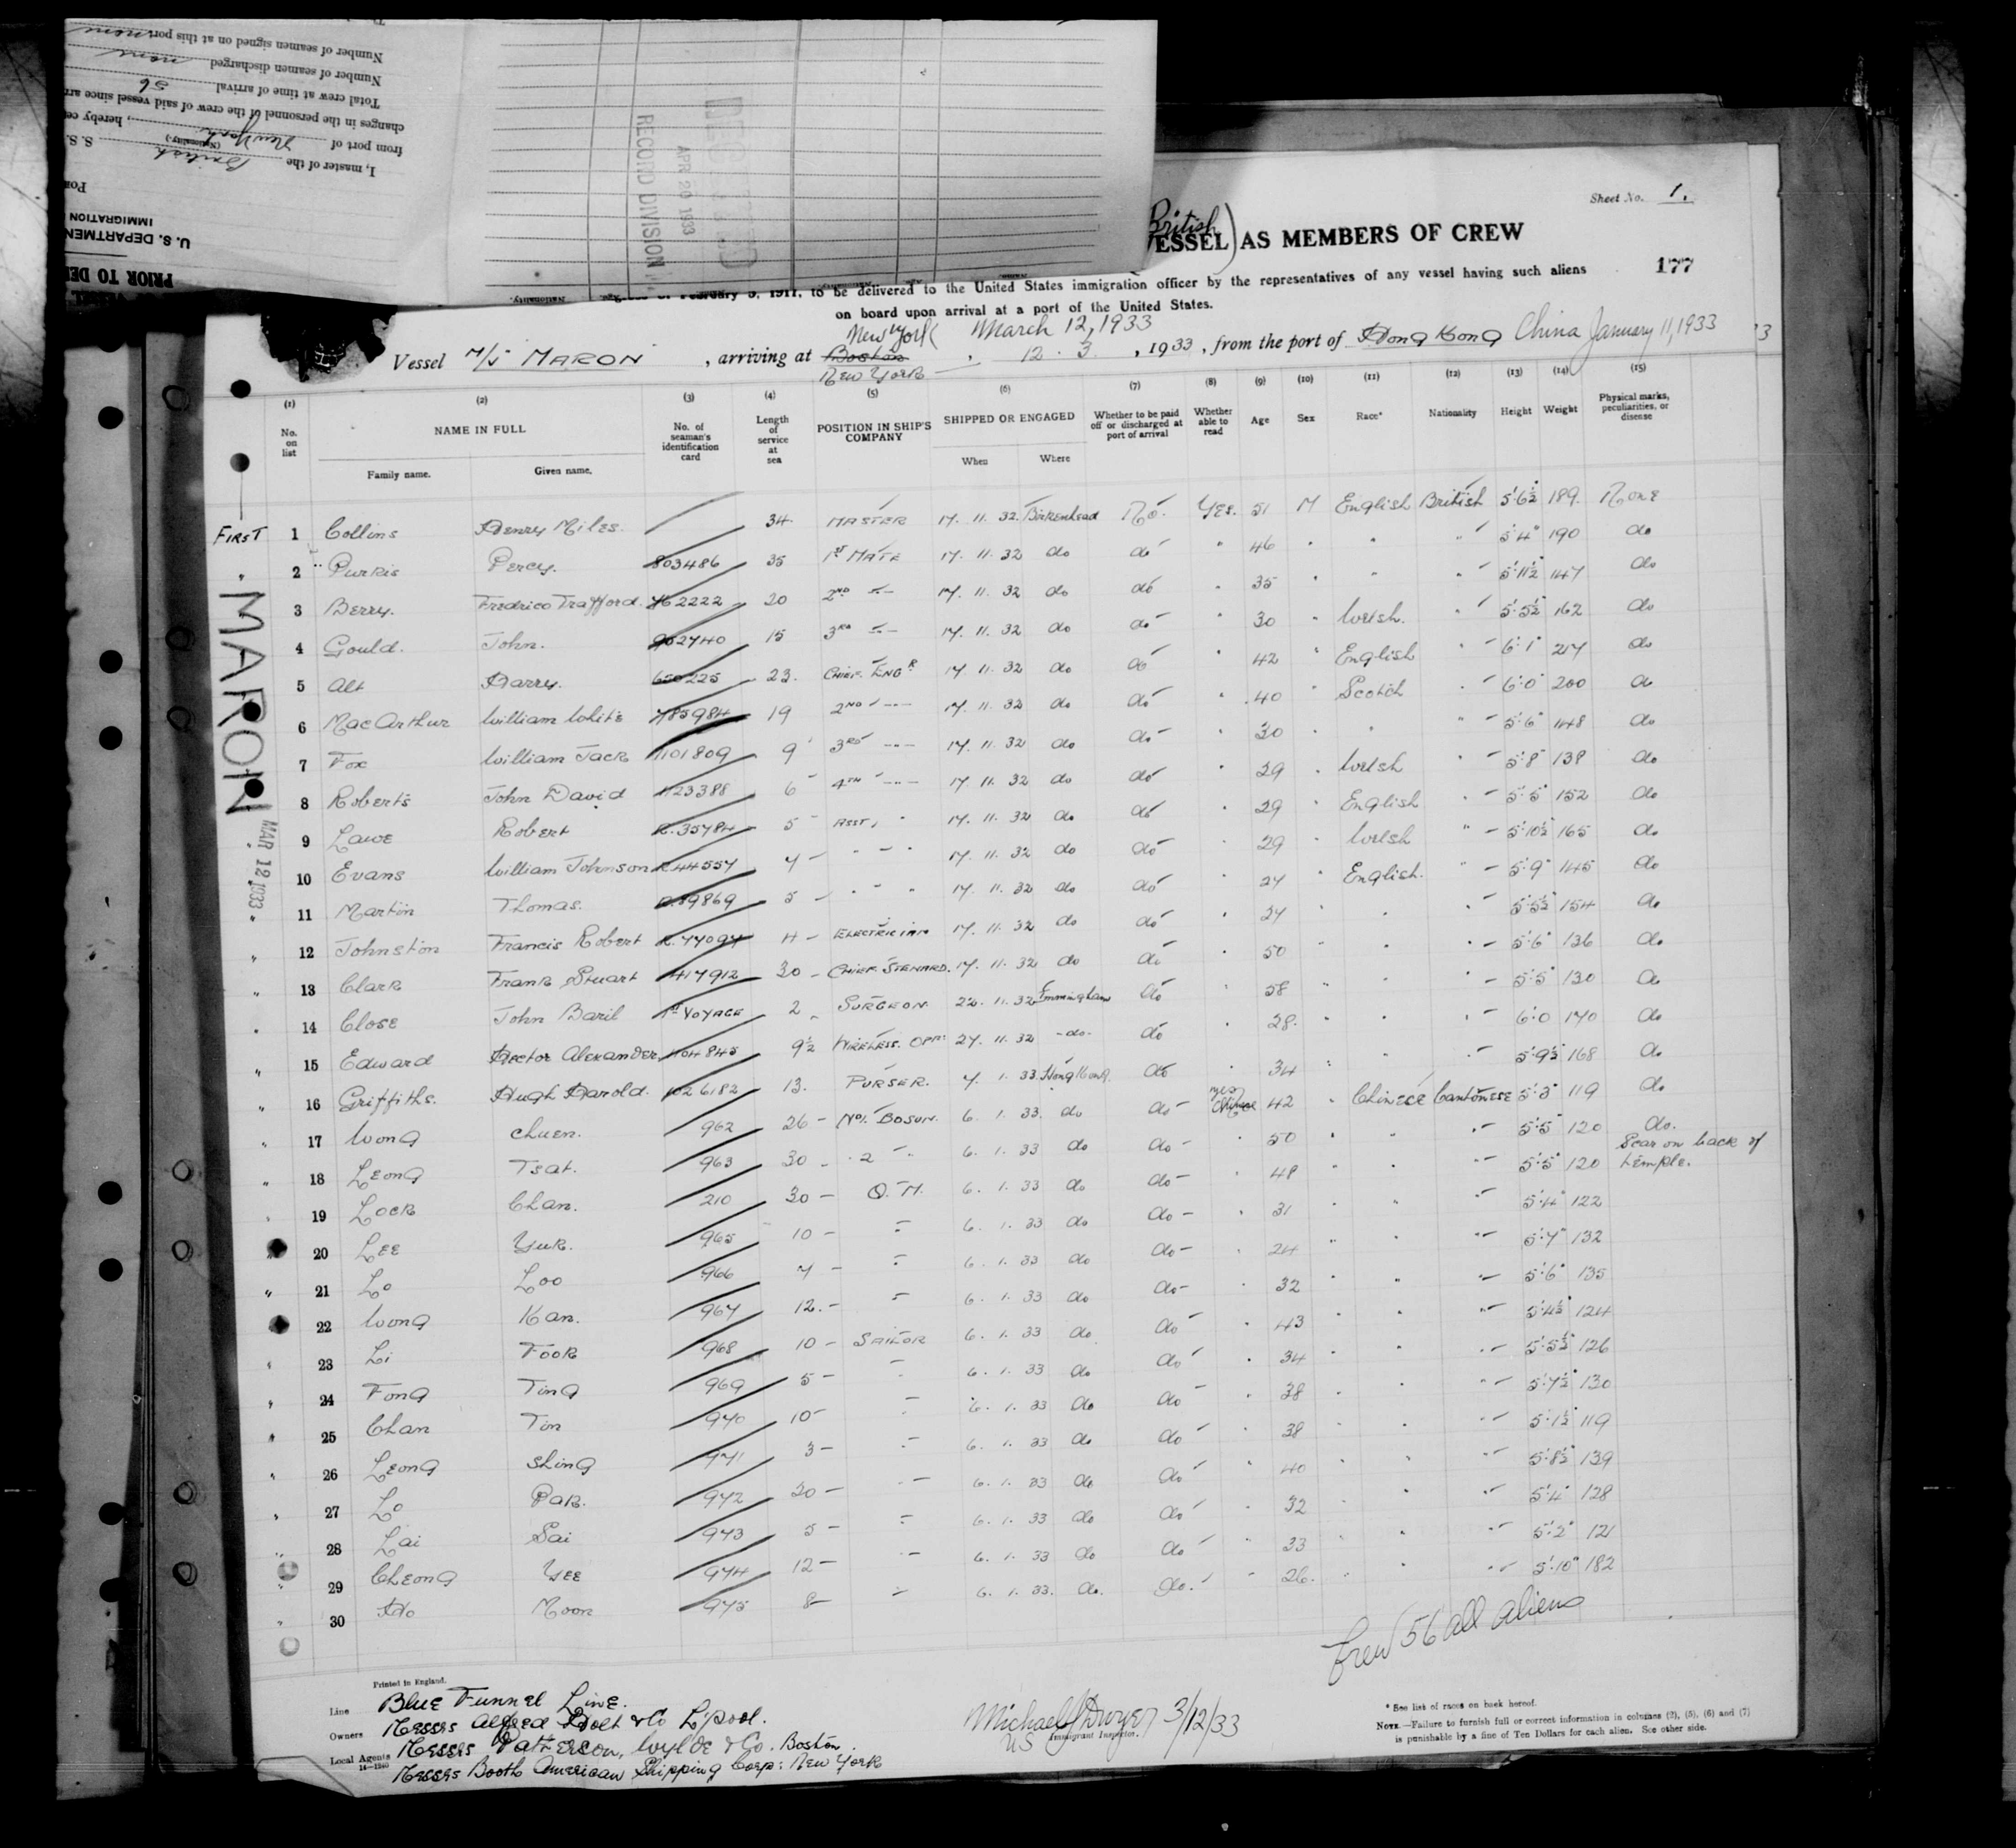 Number of seamen signed on at this port none
Number of seamen discharged none
Total crew at time of arrival 56
changes in the personnel of the crew of said vessel since
from port of New York, hereby
I, master of the British S. S.
(Nationality)
U. S. DEPARTMEN
IMMIGRATION
PRIOR TO DE
RECORD DIVISION
APR 20 1933
Sheet No. 1.
British
ESSEL) AS MEMBERS OF CREW
177
February 5, 1917, to be delivered to the United States immigration officer by the representatives of any vessel having such aliens
on board upon arrival at a port of the United States.
New York March 12, 1933
Vessel M/S "MARON", arriving at Boston, 12 . 3, 1933, from the port of Hong Kong China January 11, 1933
New York
(1) (2) (3) (4) (5) (6) (7) (8) (9) (10) (11) (12) (13) (14) (15)
No. on list NAME IN FULL No. of seaman's identification card Length of service at sea POSITION IN SHIP'S COMPANY SHIPPED OR ENGAGED Whether to be paid off or discharged at port of arrival Whether able to read Age Sex Race* Nationality Height Weight Physical marks, peculiarities, or disease
Family name. Given name. When Where
FIRST 1 Collins Henry Miles. 34. MASTER 17. 11. 32. Birkenhead No. Yes. 51 M English British 5'.6½" 189. None
" 2 Purkis Percy. 803486 35 1ST MATE 17. 11. 32 do do " 46 " " " 5'.4" 190 do
3 Berry. Fredrico Trafford. 762222 20 2ND 17. 11. 32 do do " 35 " " " 5'.11½" 147 do
4 Gould. John. 902740 15 3RD 17. 11. 32 do do " 30 " Welsh. " 5'.5½" 162 do
5 Alt Harry. 650225 23. CHIEF ENGR 17. 11. 32 do do " 42 " English " 6'.1" 217 do
6 MacArthur William White 785984 19 2ND 17. 11. 32 do do " 40 " Scotch " 6'.0" 200 do
7 Fox William Jack 1101809 9 3RD 17. 11. 32 do do " 30 " " " 5'.6" 148 do
8 Roberts John David 1123388 6 4TH 17. 11. 32 do do " 29 " Welsh " 5'.8" 138 do
9 Lawe Robert R.35784 5 ASST. " 17. 11. 32 do do " 29 " English " 5'.5" 152 do
10 Evans William Johnson R.44557 7 " " 17. 11. 32 do do " 29 " Welsh " 5'.10½" 165 do
11 Martin Thomas. R.89869 5 " " 17. 11. 32 do do " 27 " English. " 5'.9" 145 do
12 Johnston Francis Robert R.77097 4 ELECTRICIAN 17. 11. 32 do do " 27 " " " 5'.5½" 154 do
13 Clark Frank Stuart 417912 30 CHIEF STEWARD. 17. 11. 32 do do " 50 " " " 5'.6" 136 do
14 Close John Baril 1ST VOYAGE 2 SURGEON. 22. 11. 32 Immingham do " 58 " " " 5'.5" 130 do
15 Edward Hector Alexander 1104845 9½ WIRELESS. OPR. 27. 11. 32 -do- do " 28. " " " 6'.0 170 do
16 Griffiths. Hugh Harold. 1026182 13. PURSER. 7. 1. 33. Hong Kong. do " 34 " " " 5'.9½" 168 do
17 Wong Chuen. 962 26 No1. BOSUN. 6. 1. 33. do do yes 42 " Chinese Cantonese 5'.3" 119 do
18 Leong Tsat. 963 30 " 2 " 6. 1. 33 do do " 50 " " " 5'.5" 120 do.
19 Lock Chan. 210 30 Q.M. 6. 1. 33 do do " 48 " " " 5'.5" 120 Scar on back of temple.
20 Lee Yuk. 965 10 " 6. 1. 33 do do " 31 " " " 5'.4" 122
21 Lo Loo 966 7 " 6. 1. 33 do do " 24 " " " 5'.7" 132
22 Wong Kan. 967 12. " 6. 1. 33 do do " 32 " " " 5'.6" 135
23 Li Fook 968 10 SAILOR 6. 1. 33 do do " 43 " " " 5'.4½" 124
24 Fong Ting 969 5 " 6. 1. 33 do do " 34 " " " 5'.5½" 126
25 Chan Tin 970 10 " 6. 1. 33 do do " 38 " " " 5'.7½" 130
26 Leong Shing 971 3 " 6. 1. 33 do do " 38 " " " 5'.1½" 119
27 Lo Pak. 972 20 " 6. 1. 33 do do " 40 " " " 5'.8½" 139
28 Lai Sai 973 5 " 6. 1. 33 do do " 32 " " " 5'.4" 128
29 Cheong Yee 974 12 " 6. 1. 33 do do " 33 " " " 5'.2" 121
30 Ho Moon 975 8 " 6. 1. 33. do. do. " 26. " " " 5'.10" 182
MARON
MAR 12 1933
Crew 56 all aliens
Printed in England.
Line Blue Funnel Line.
Owners Messrs Alfred Holt & Co L'pool.
Local Agents Messrs Patterson, Wylde & Co. Boston.
14-1240
Messrs Booth American Shipping Corp: New York
Michael J Dwyer 3/12/33
US Immigrant Inspector.
* See list of races on back hereof.
NOTE.—Failure to furnish full or correct information in columns (2), (5), (6) and (7)
is punishable by a fine of Ten Dollars for each alien. See other side.